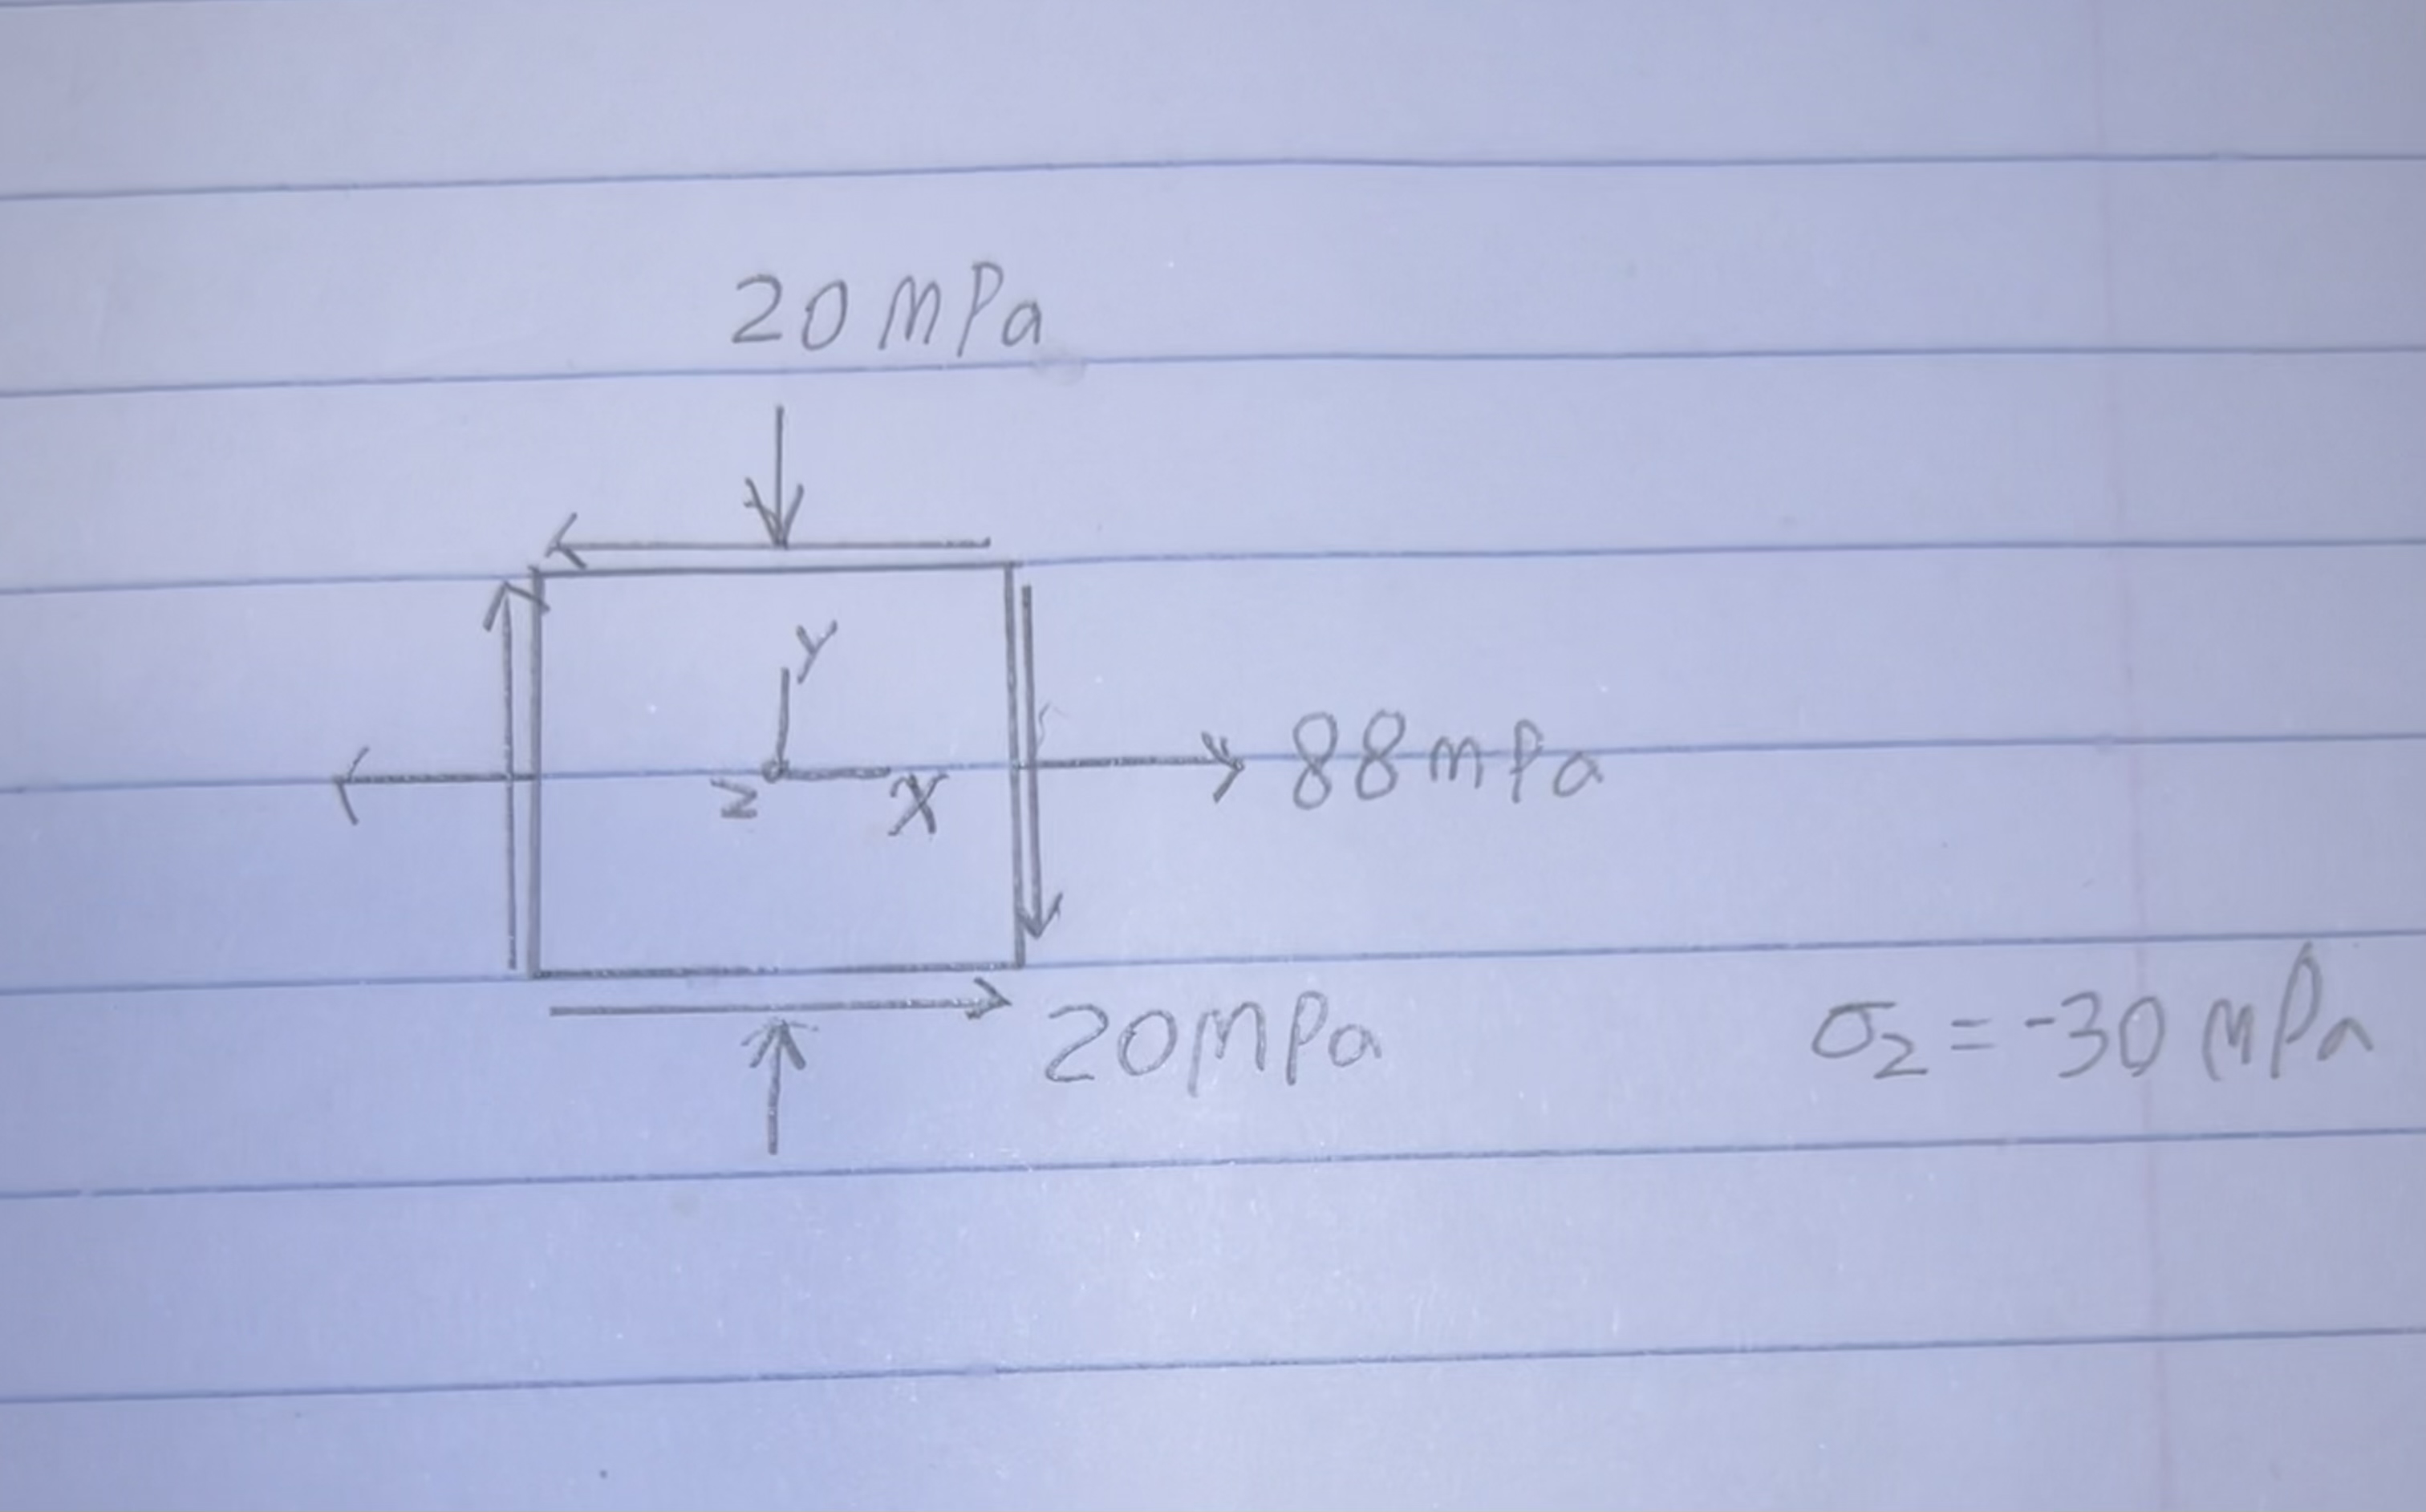 20 MPa
y
z x
88 mPa
20 MPa
σ2 = -30 MPa